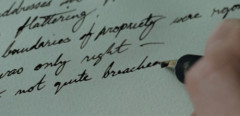 addresses in
flattering.
boundaries of propriety were
was only right —
not quite breached